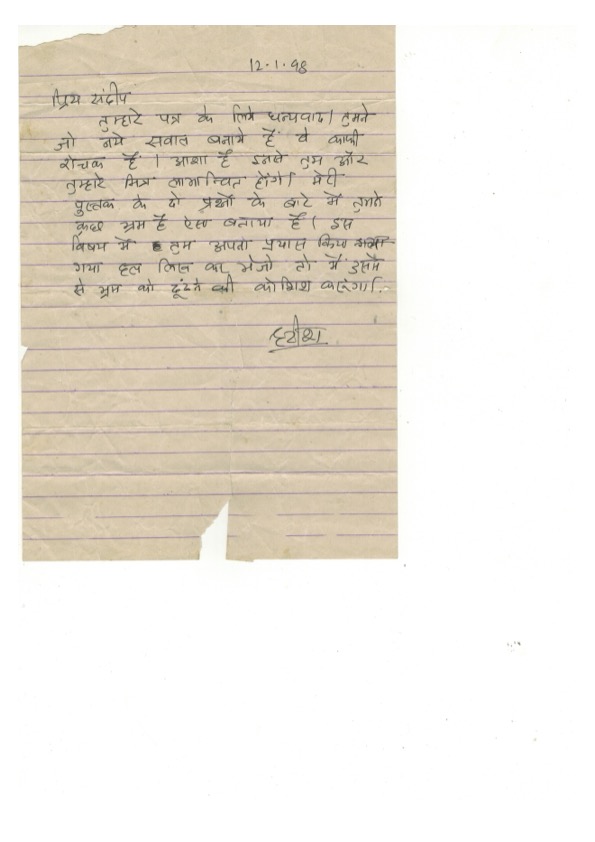 12.1.98
प्रिय संदीप
तुम्हारे पत्र के लिये धन्यवाद। तुमने
जो नये सवाल बनाये हैं वे काफी
रोचक हैं। आशा है इनसे तुम और
तुम्हारे मित्र लाभान्वित होंगे। मेरी
पुस्तक के दो प्रश्नों के बारे में तुमने
कुछ भ्रम है ऐसा बताया है। इस
विषय में तुम अपना प्रयास किया
गया हल लिख कर भेजो तो मैं उसमें
से भ्रम को ढूंढने की कोशिश करूंगा।
हरीश